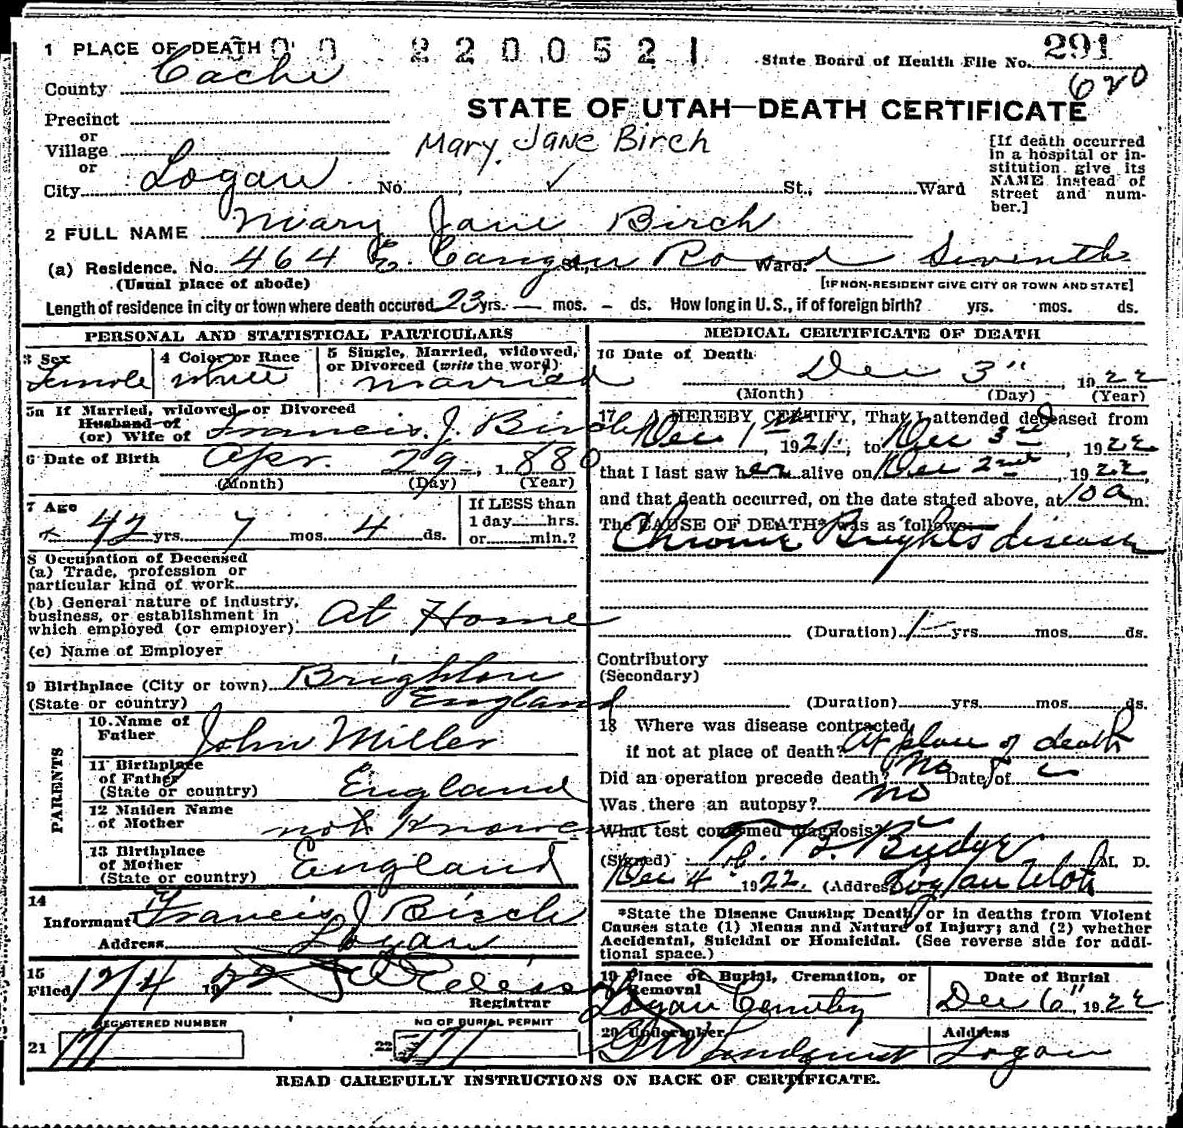 1 PLACE OF DEATH 00 220052 1
State Board of Health File No. 291
620
County Cache
STATE OF UTAH—DEATH CERTIFICATE
Precinct
or
Village
or
City Logan No. ✓ St., Ward
Mary Jane Birch
[If death occurred
in a hospital or in-
stitution give its
NAME instead of
street and num-
ber.]
2 FULL NAME Mary Jane Birch
(a) Residence. No. 464 E. Canyon Road St., Ward. Seventh
(Usual place of abode) [IF NON-RESIDENT GIVE CITY OR TOWN AND STATE]
Length of residence in city or town where death occured 23 yrs. — mos. – ds. How long in U.S., if of foreign birth? yrs. mos. ds.
PERSONAL AND STATISTICAL PARTICULARS
3 Sex
Female
4 Color or Race
White
5 Single, Married, widowed,
or Divorced (write the word)
married
5a If Married, widowed, or Divorced
Husband of
(or) Wife of Francis. J. Birch
6 Date of Birth Apr. 29, 1880
(Month) (Day) (Year)
7 Age
42 yrs. 7 mos. 4 ds.
If LESS than
1 day hrs.
or min.?
8 Occupation of Deceased
(a) Trade, profession or
particular kind of work
(b) General nature of industry,
business, or establishment in
which employed (or employer) At Home
(c) Name of Employer
9 Birthplace (City or town) Brighton
(State or country) England
PARENTS
10. Name of
Father John Miller
11 Birthplace
of Father
(State or country) England
12 Maiden Name
of Mother not Known
13 Birthplace
of Mother
(State or country) England
14
Informant Francis J Birch
Address Logan
15
Filed 12/4 1922
Registrar
REGISTERED NUMBER
21 171
NO OF BURIAL PERMIT
22 171
MEDICAL CERTIFICATE OF DEATH
16 Date of Death
Dec 3", 1922
(Month) (Day) (Year)
17 I HEREBY CERTIFY, That I attended deceased from
Dec 1st, 1921, to Dec 3rd, 1922
that I last saw her alive on Dec 2nd, 1922
and that death occurred, on the date stated above, at 10 a m.
The CAUSE OF DEATH* was as follows:
Chronic Brights disease
(Duration) 1 – yrs. mos. ds.
Contributory
(Secondary)
(Duration) yrs. mos. ds.
18 Where was disease contracted,
if not at place of death? At place of death
Did an operation precede death? No Date of
Was there an autopsy? no
What test confirmed diagnosis?
(Signed) B. Budge M. D.
Dec 4th 1922. (Address) Logan Utah
*State the Disease Causing Death, or in deaths from Violent
Causes state (1) Means and Nature of Injury; and (2) whether
Accidental, Suicidal or Homicidal. (See reverse side for addi-
tional space.)
19 Place of Burial, Cremation, or
Removal
Logan Cemetery
Date of Burial
Dec 6", 1922
20 Undertaker
Address
Logan
READ CAREFULLY INSTRUCTIONS ON BACK OF CERTIFICATE.